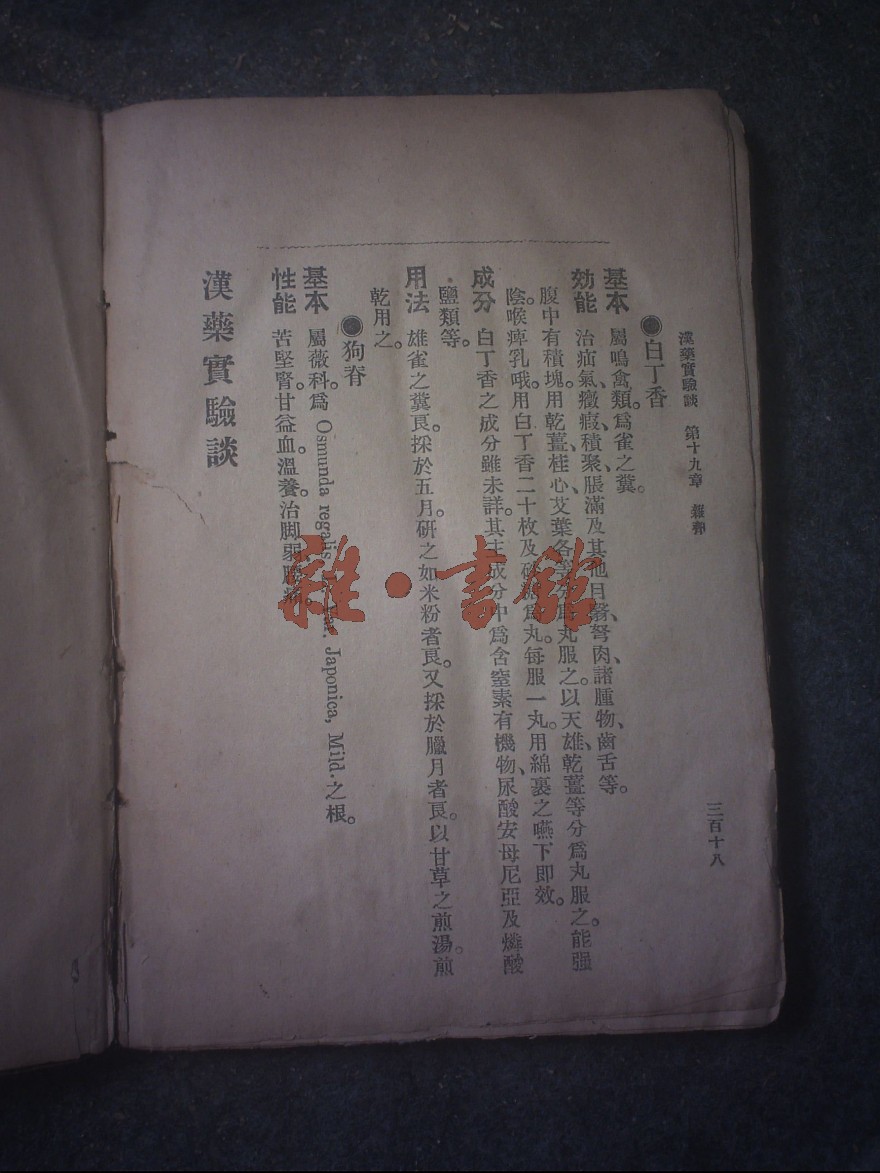 漢藥實驗談　第十九章　報
三百十八
●白丁香
基本　屬鳴禽類。爲雀之糞。
効能　治疝氣、癥瘕、積聚、脹滿及其他目翳、弩肉、諸腫物、齒舌等。
腹中有積塊。用乾薑、桂心、艾葉各等分爲丸服之。以天雄、乾薑等分爲丸服之。能强
陰。喉痺乳哦。用白丁香二十枚及砂糖爲丸。每服一丸。用綿裹之嚥下即效。
成分　白丁香之成分雖未詳。其主成分中爲含窒素有機物、尿酸安母尼亞及燐酸
鹽類等。
用法　雄雀之糞良。採於五月。研之如米粉者良。又採於臘月者良。以甘草之煎湯。煎
乾用之。
●狗脊
基本　屬薇科。爲 Osmunda regalis Japonica, Mild. 之根。
性能　苦堅腎。甘益血。溫養。治脚弱腰痛。
漢藥實驗談
雜·書館